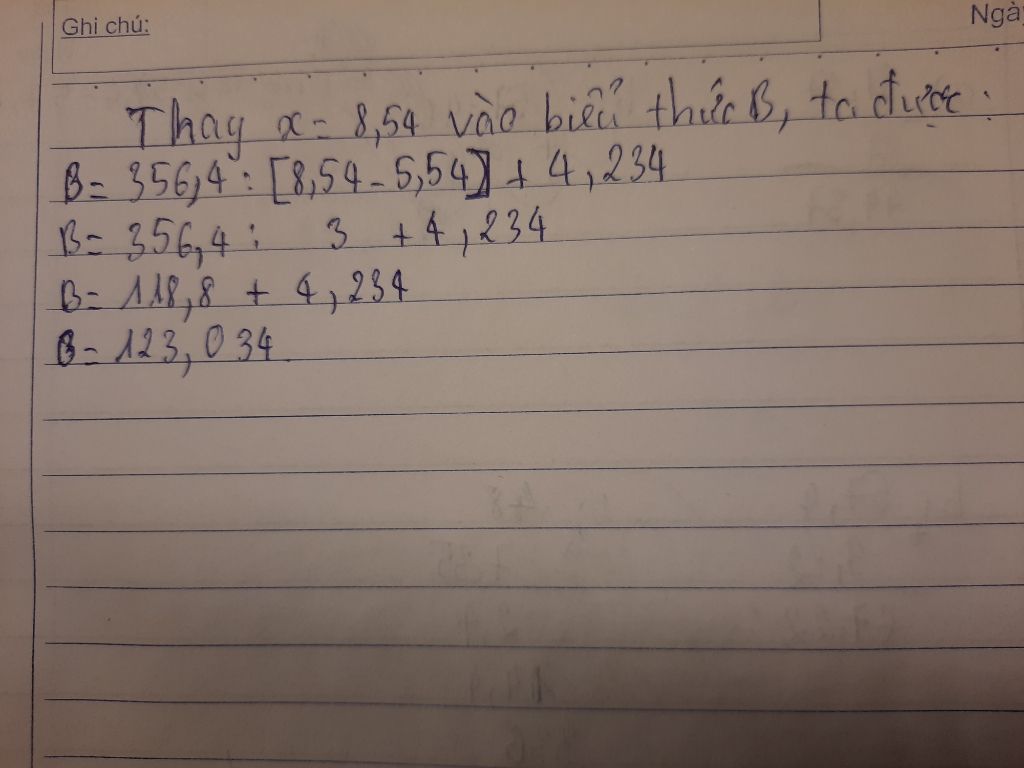 Ghi chú:
Ngà
Thay x = 8,54 vào biểu thức B, ta được:
B = 356,4 : [8,54 - 5,54] + 4,234
B = 356,4 : 3 + 4,234
B = 118,8 + 4,234
B = 123,034